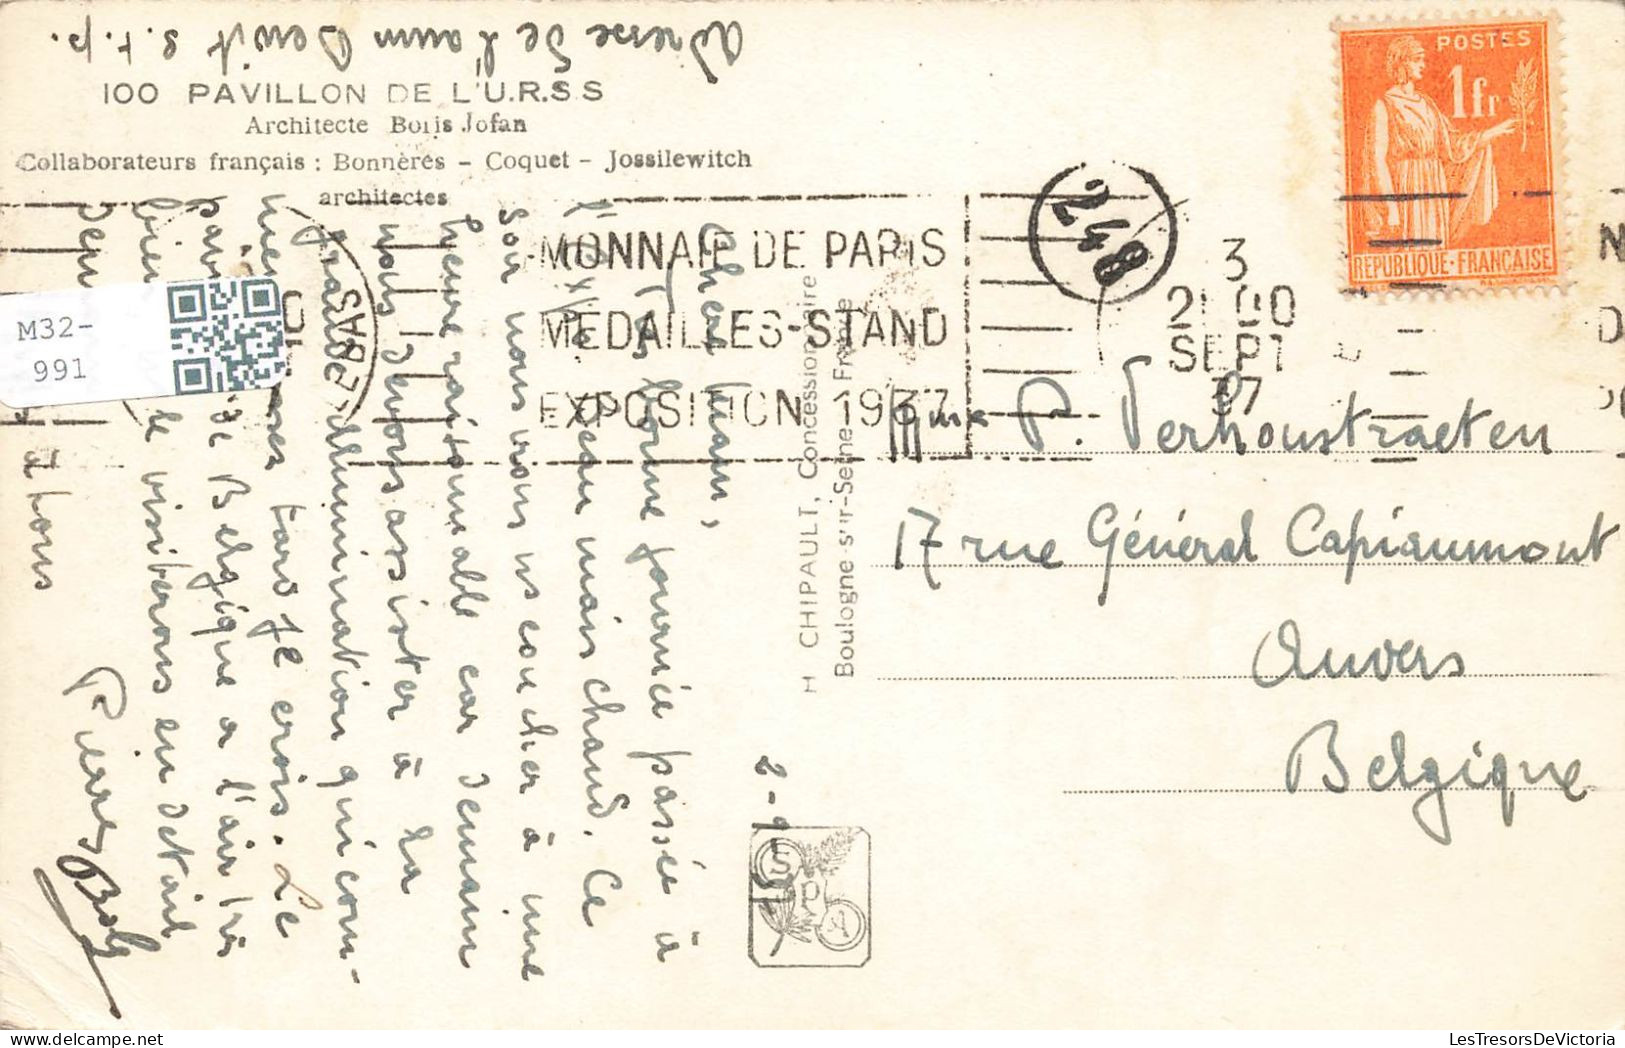 Adresse de l'aum Devit s.t.p.
100 PAVILLON DE L'U.R.S.S
Architecte Boris Jofan
Collaborateurs français : Bonnères - Coquet - Jossilewitch
architectes
POSTES
1fr
REPUBLIQUE·FRANÇAISE
248
MONNAIE DE PARIS
MEDAILLES-STAND
EXPOSITION 1937
3
21 00
SEPT
37
M32-
991
H CHIPAULT, Concessionnaire
Boulogne-sur-Seine-France
2-9
Chère Mam,
Très bonne journée passée à
l'expo. Beau mais chaud. Ce
soir nous irons ns coucher à une
heure raisonnable car demain
nous devons assister à la
grande illumination qui com-
mence tard je crois. Le
pavil. de Belgique a l'air très
bien le visiterons en détail
à tous
Pierre
Bob
Mme P. Verhoustraeten
17 rue Général Capiaumont
Anvers
Belgique
S
P
A
LesTresorsDeVictoria